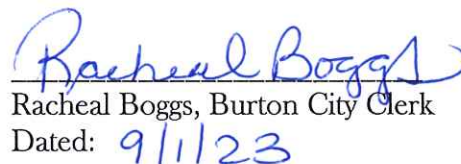 Racheal Boggs
Racheal Boggs, Burton City Clerk
Dated: 9/1/23